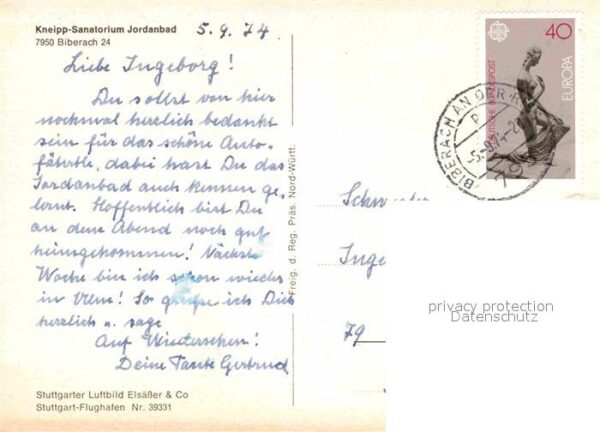 Kneipp-Sanatorium Jordanbad
7950 Biberach 24
5.9.74
Liebe Ingeborg!
Du sollst von hier
nochmal herzlich bedankt
sein für das schöne Auto-
fährtle, dabei hast Du das
Jordanbad auch kennen ge-
lernt. Hoffentlich bist Du
an dem Abend noch gut
heimgekommen! Nächste
Woche bin ich schon wieder
in Ulm! So grüße ich Dich
herzlich u. sage
Auf Wiedersehen!
Deine Tante Gertrud
Stuttgarter Luftbild Elsäßer & Co
Stuttgart-Flughafen Nr. 39331
Freig. d. Reg. Präs. Nord-Württ.
40
EUROPA
DEUTSCHE BUNDESPOST
BIBERACH AN DER
79
privacy protection
Datenschutz